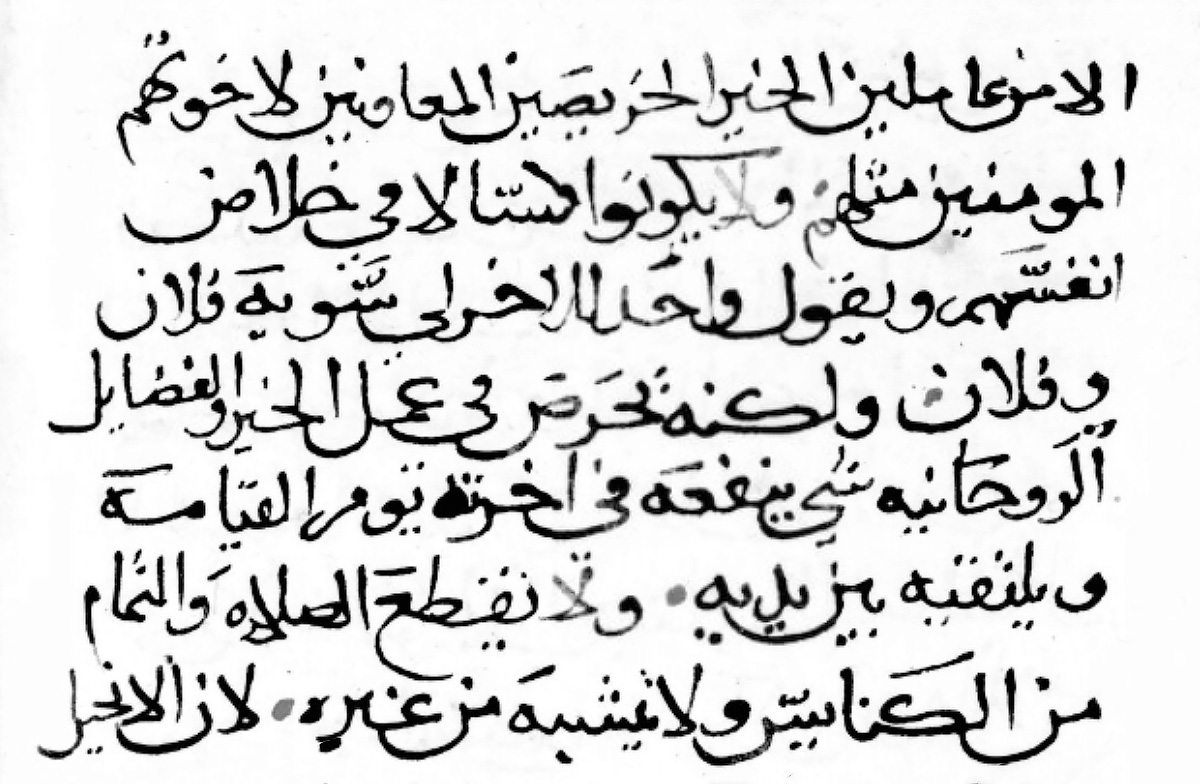 الا من عاملين الخير الحريصين المعاونين لاخوتهم
المومنين مثلهم ولا يكونوا كسالا في خلاص
انفسهم ويقول واحد للاخر لي سوية فلان
وفلان ولكنه يحرص في عمل الخير والفضايل
الروحانيه شي ينفعه في اخرته يوم القيامه
ويلتقيه بين يديه ولا تقطع الصلاه والتمام
من الكنايس ولا تشبه من غيره لان الانجيل